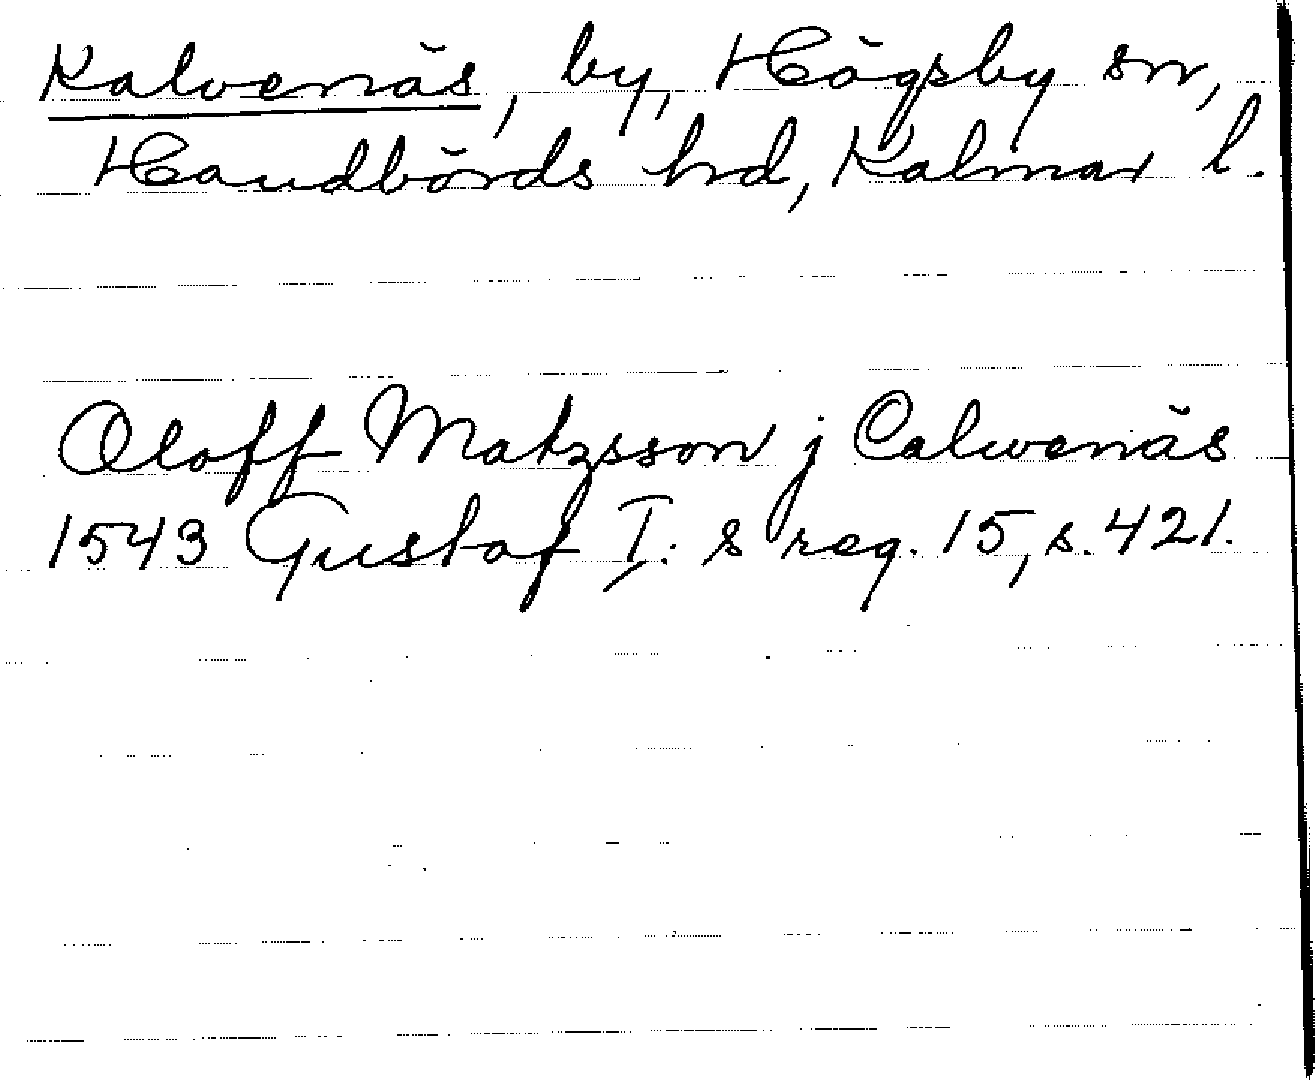 Kalvenäs, by, Högsby sn,
Handbörds hd, Kalmar l.
Oloff Matzsson j Calwenäs
1543 Gustaf I:s reg. 15, s. 421.